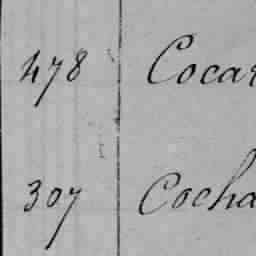 478 Cocar
307 Cocha